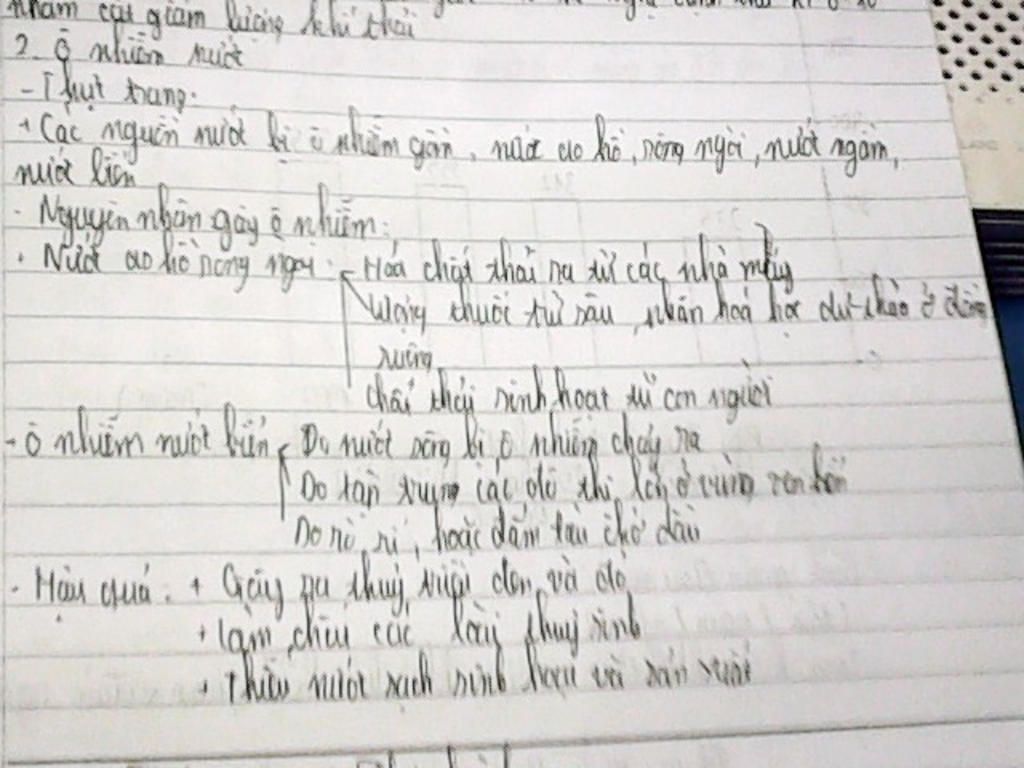 nhằm cắt giảm lượng khí thải
2. Ô nhiễm nước
- Thực trạng.
+ Các nguồn nước bị ô nhiễm gồm, nước ao hồ, sông ngòi, nước ngầm,
nước biển
- Nguyên nhân gây ô nhiễm:
+ Nước ao hồ sông ngòi: Hóa chất thải ra từ các nhà máy
Lượng thuốc trừ sâu, phân hoá học dư thừa ở đồng
ruộng
Chất thải sinh hoạt từ con người
- Ô nhiễm nước biển Do nước sông bị ô nhiễm chảy ra
Do tập trung các đô thị lớn ở vùng ven biển
Do rò rỉ, hoặc đắm tàu chở dầu
- Hậu quả: + Gây ra thuỷ triều đen và đỏ
+ Làm chết các loài thuỷ sinh
+ Thiếu nước sạch sinh hoạt và sản xuất